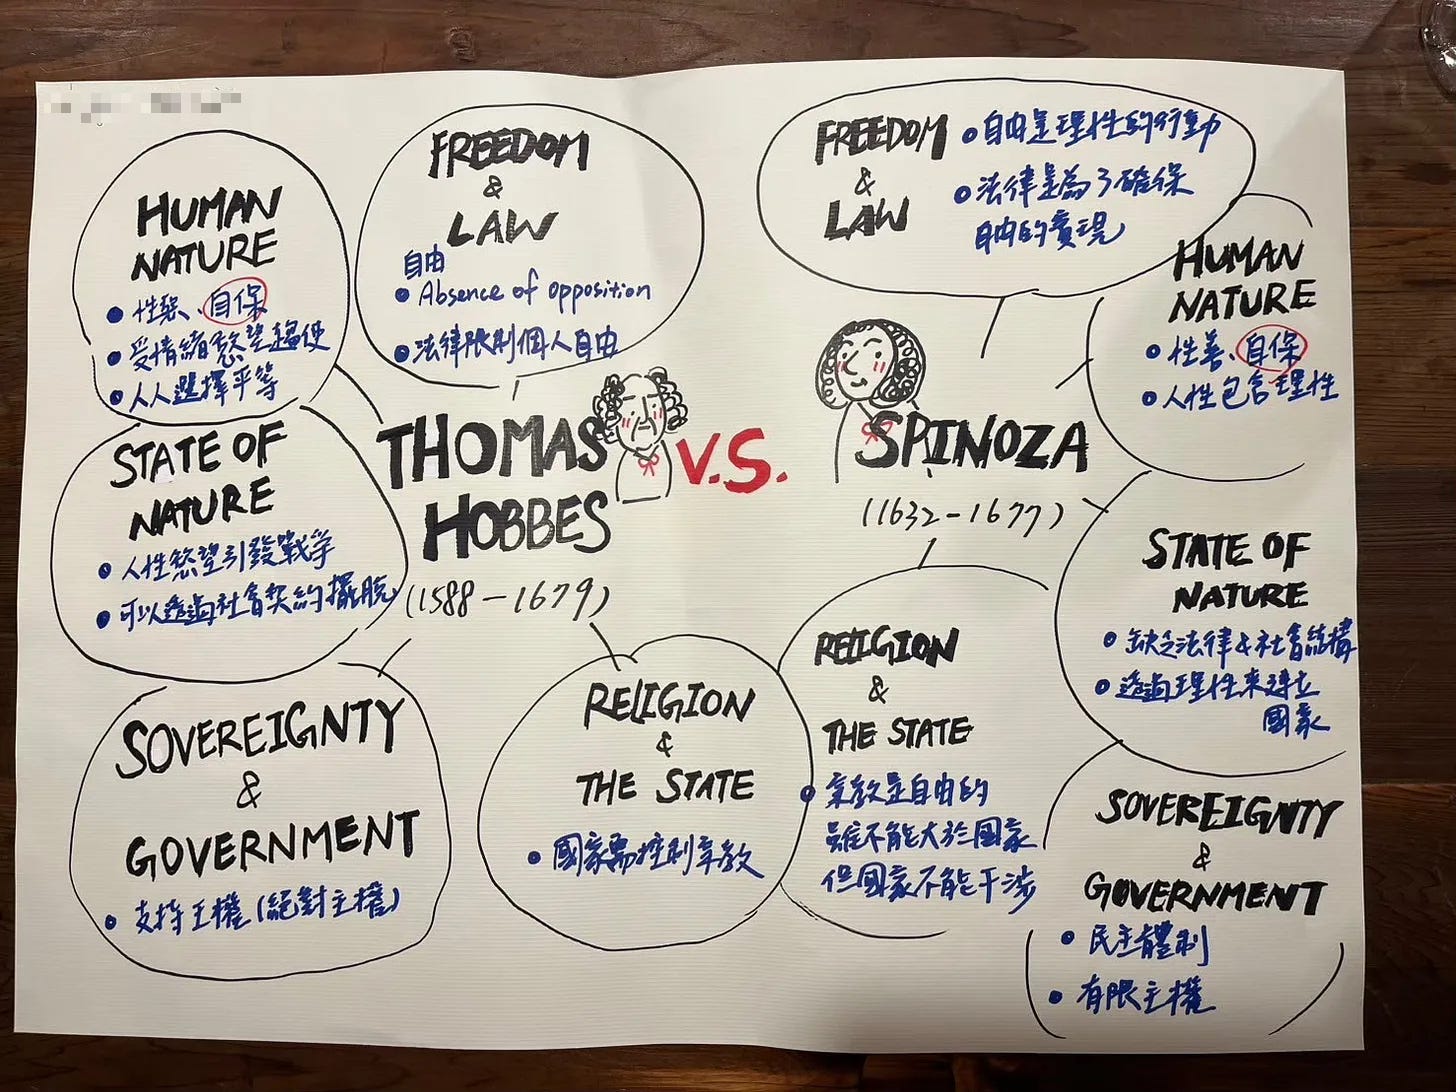 THOMAS
HOBBES
(1588-1679)
V.S.
SPINOZA
(1632-1677)
HUMAN
NATURE
• 性惡、自保
• 受情緒慾望趨使
• 人人選擇平等
FREEDOM
&
LAW
自由
• Absence of opposition
• 法律限制個人自由
STATE OF
NATURE
• 人性慾望引發戰爭
• 可以透過社會契約擺脫
SOVEREIGNTY
&
GOVERNMENT
• 支持王權(絕對主權)
RELIGION
&
THE STATE
• 國家需控制宗教
FREEDOM
&
LAW
• 自由是理性的行動
• 法律是為了確保
自由的實現
HUMAN
NATURE
• 性善、自保
• 人性包含理性
STATE OF
NATURE
• 缺乏法律&社會結構
• 透過理性來建立
國家
RELIGION
&
THE STATE
• 宗教是自由的
雖不能大於國家
但國家不能干涉
SOVEREIGNTY
&
GOVERNMENT
• 民主體制
• 有限主權